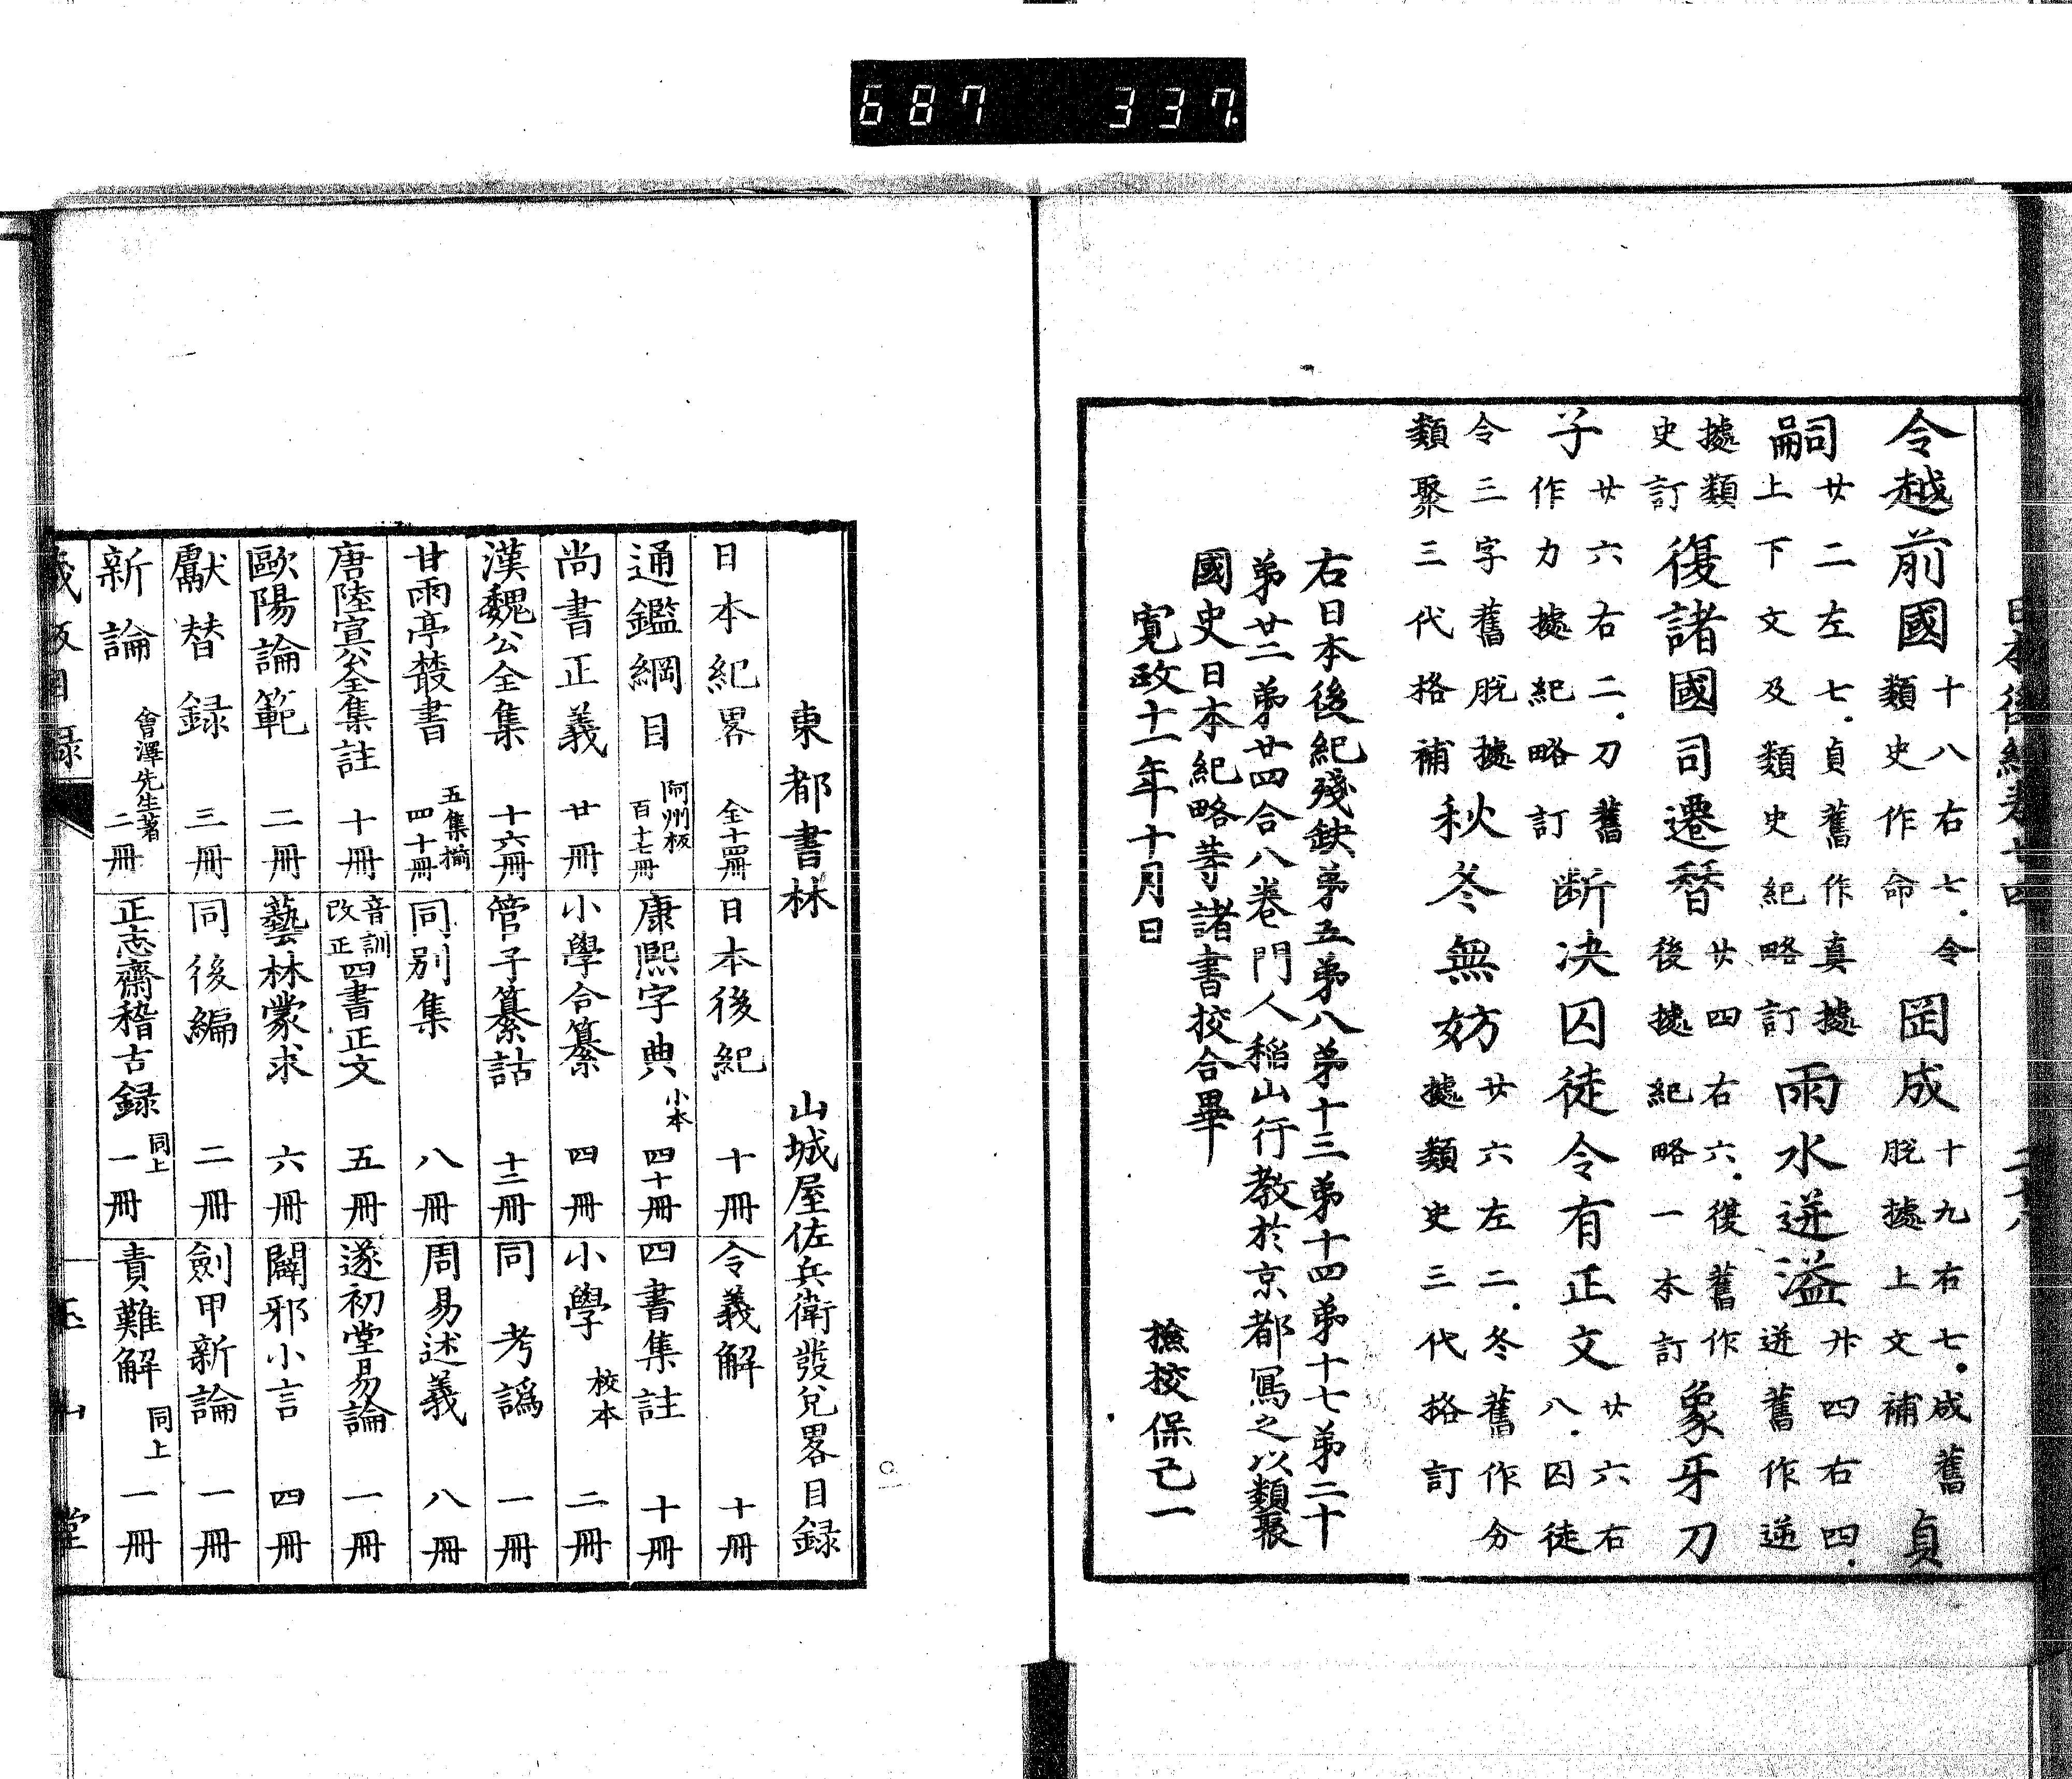 687 337.
日本後紀卷廿四 二十八
令越前國 十八右七.令類史作命 罡成 十九右七.成舊脫據上文補 貞
嗣 廿二左七.貞舊作真據上下文及類史紀略訂 雨水迸溢 廿四右四.迸舊作逆
據類史訂 復諸國司遷替 廿四右六.復舊作後據紀略一本訂 象牙刀
子 廿六右二.刀舊作力據紀略訂 断决囚徒令有正文 廿六右八.囚徒
令三字舊脫據類聚三代格補 秋冬無妨 廿六左二.冬舊作分據類史三代格訂
右日本後紀殘缺弟五弟八弟十三弟十四弟十七弟二十
弟廿二弟廿四合八卷門人稲山行教於京都寫之以類聚
國史日本紀略等諸書校合畢
寛政十一年十月日 撿校保己一
東都書林 山城屋佐兵衛發兌畧目録
日本紀畧 全十四冊 日本後紀 十冊 令義解 十冊
通鑑綱目 阿州板 百十七冊 康熙字典 小本 四十冊 四書集註 十冊
尚書正義 廿冊 小學合纂 四冊 小學 校本 二冊
漢魏公全集 十六冊 管子纂詁 十三冊 同考譌 一冊
甘雨亭叢書 五集揃 四十冊 同别集 八冊 周易述義 八冊
唐陸宣公全集註 十冊 音訓改正四書正文 五冊 遂初堂易論 一冊
歐陽論範 二冊 藝林蒙求 六冊 闢邪小言 四冊
獻替録 三冊 同後編 二冊 劍甲新論 一冊
新論 會澤先生著 二冊 正志齋稽古録 同上 一冊 責難解 同上 一冊
藏板目録 玉山堂